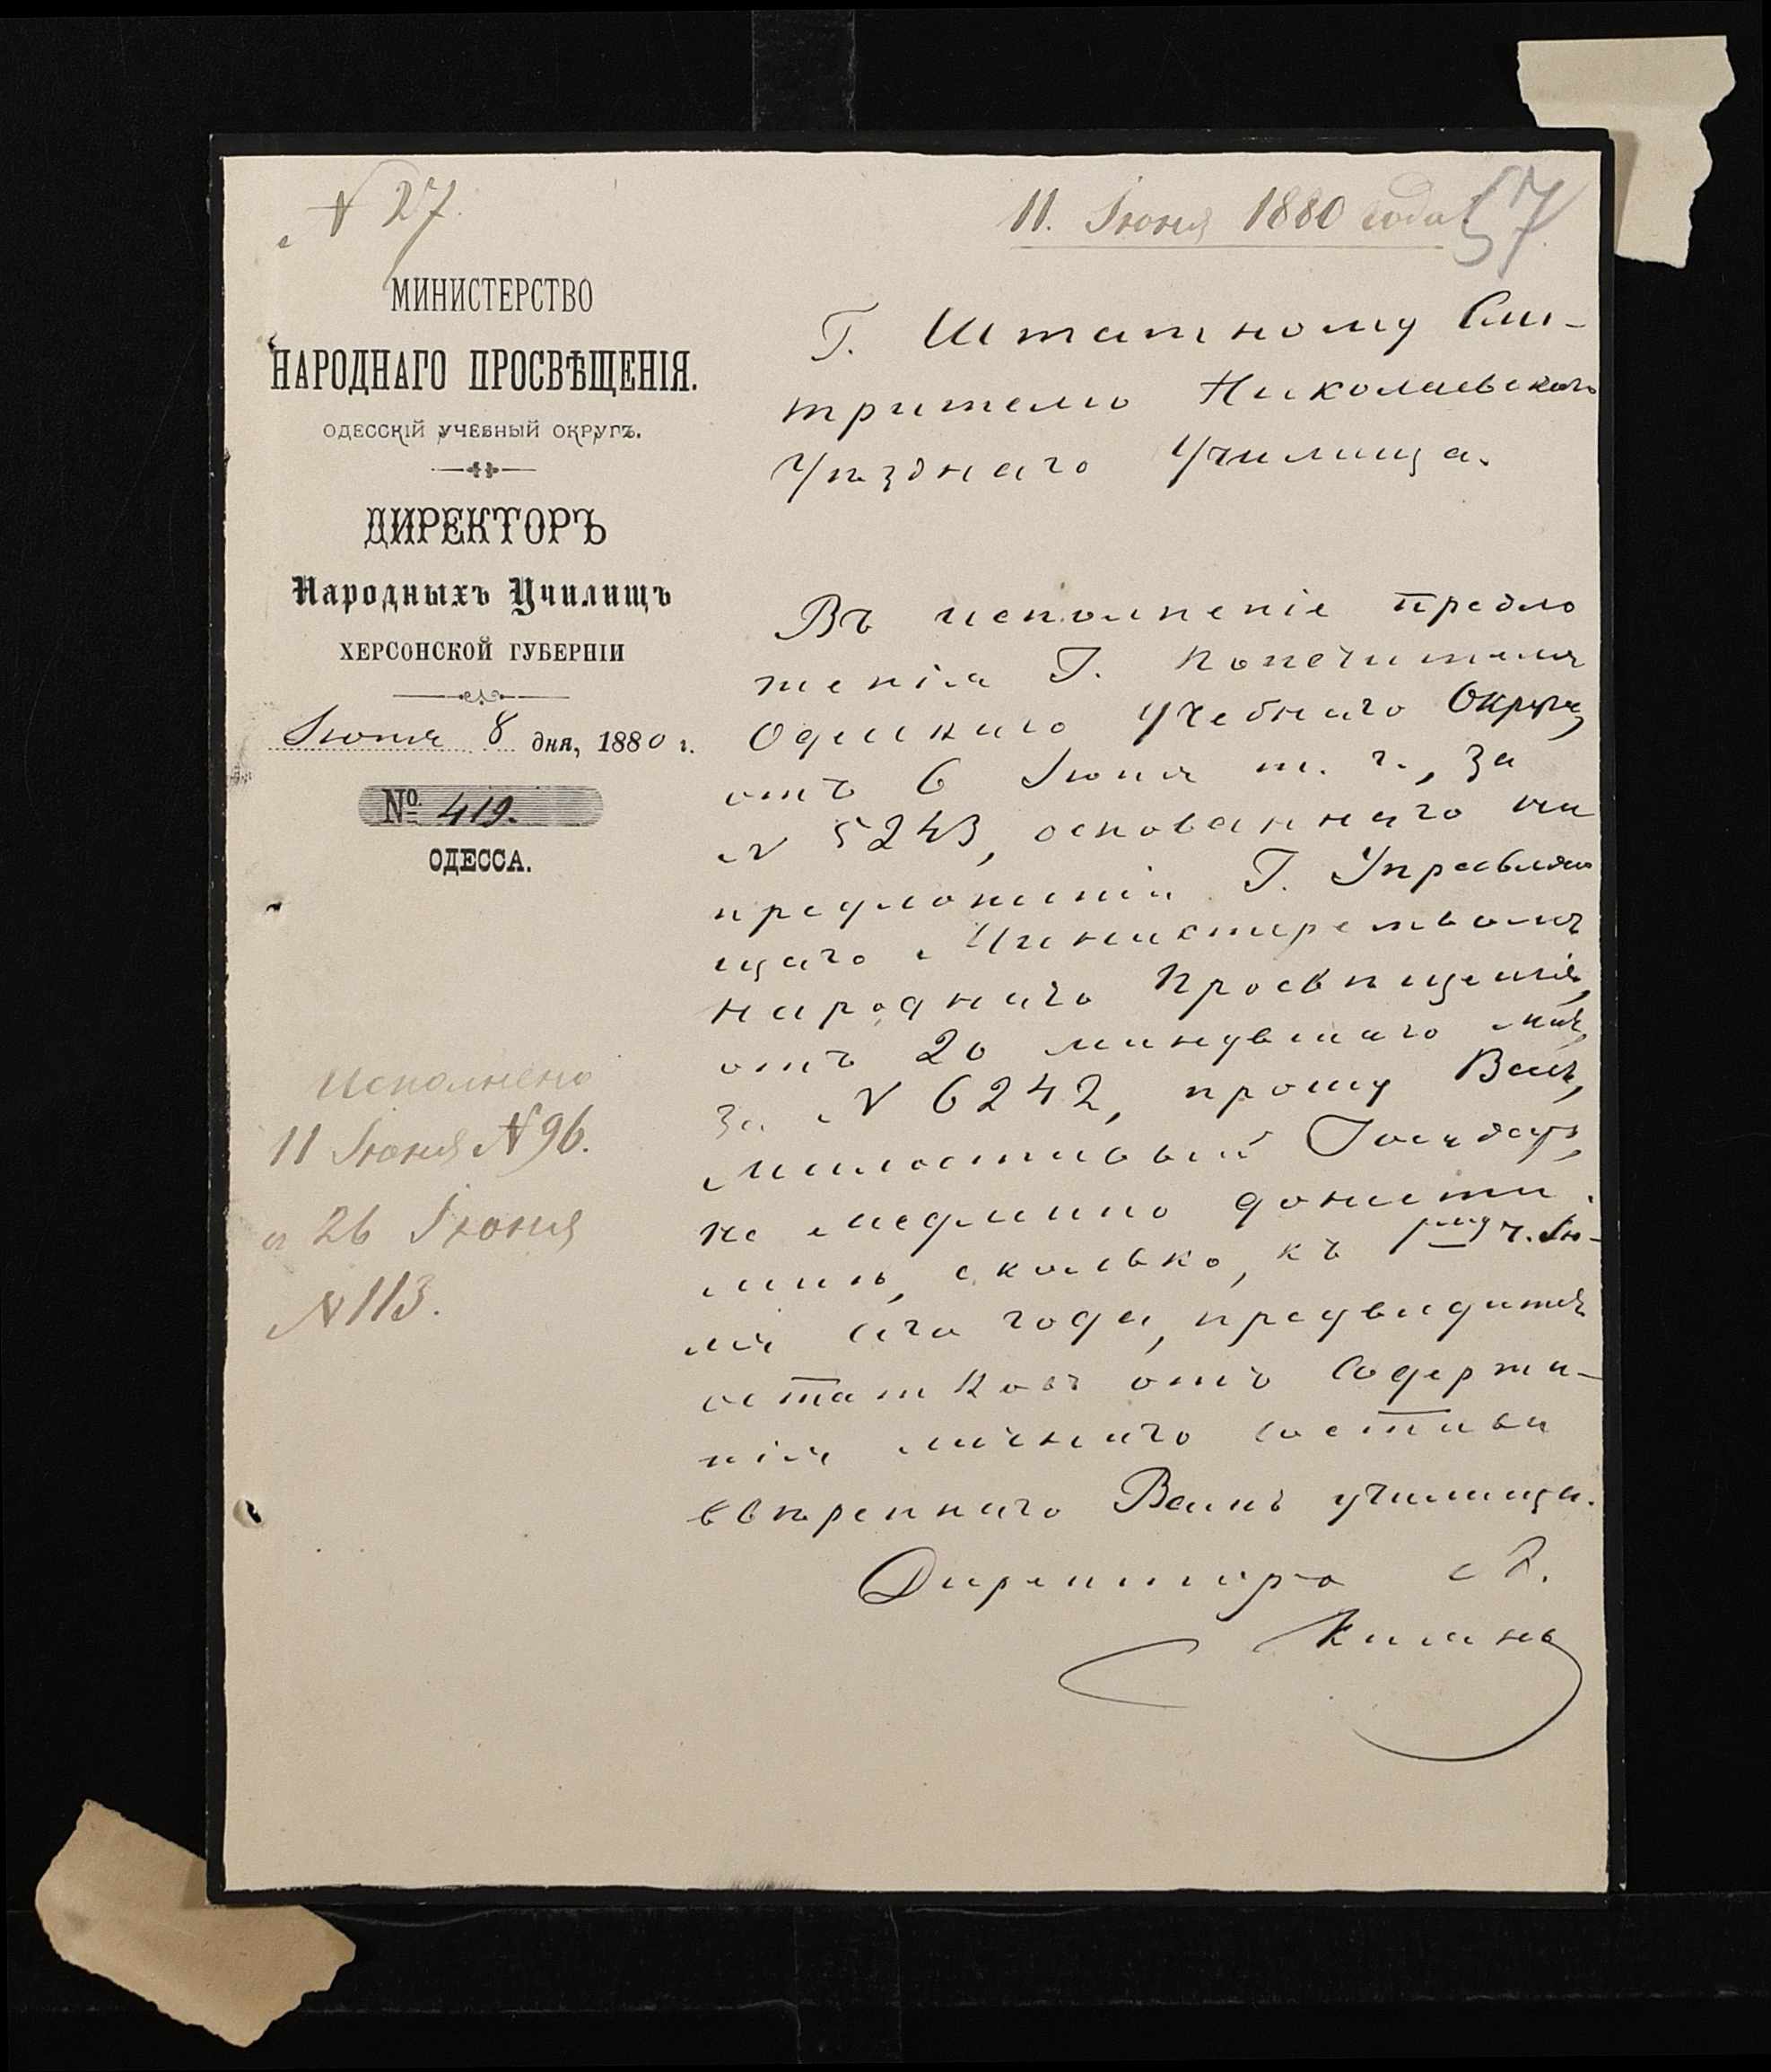 № 27.
11. Іюня 1880 года
57
МИНИСТЕРСТВО
НАРОДНАГО ПРОСВѢЩЕНІЯ.
ОДЕССКІЙ УЧЕБНЫЙ ОКРУГЪ.
ДИРЕКТОРЪ
Народныхъ Училищъ
ХЕРСОНСКОЙ ГУБЕРНІИ
Іюня 8 дня, 1880 г.
№ 419.
ОДЕССА.
Исполнено
11 Іюня № 96.
и 26 Іюня
№ 113.
Г. Штатному Смо-
трителю Николаевскаго
Уѣзднаго Училища.
Въ исполненіе предло
женія Г. Попечителя
Одесскаго Учебнаго Округа
отъ 6 Іюня т. г., за
№ 5243, основаннаго на
предложеніи Г. Управляю
щаго Министерствомъ
народнаго Просвѣщенія,
отъ 20 минувшаго Мая,
за № 6242, прошу Васъ,
Милостивый Государь,
не медленно донести
мнѣ, сколько, къ ч. Iю-
ля сего года, предвидится
остатковъ отъ содержа-
нія личнаго состава
ввѣреннаго Вамъ училища.
Директоръ